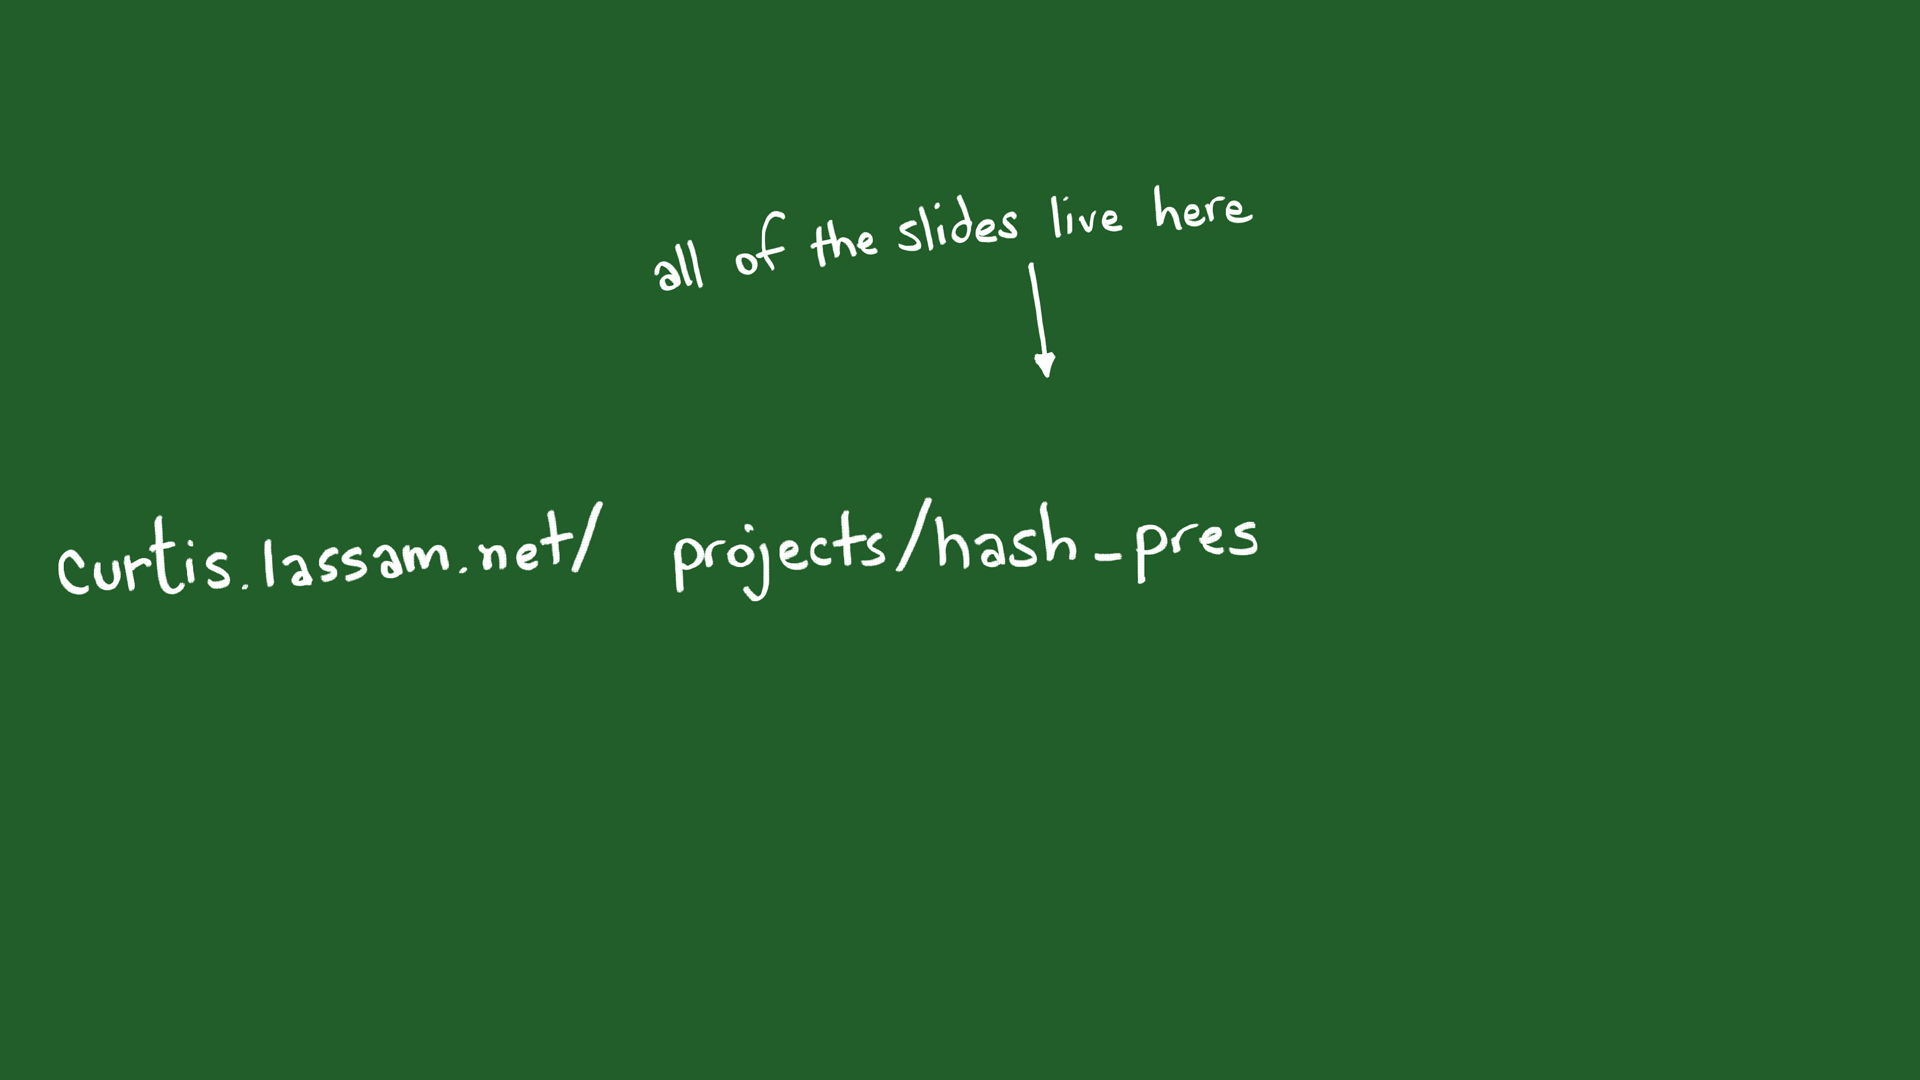 all of the slides live here
curtis.lassam.net/ projects/hash_pres